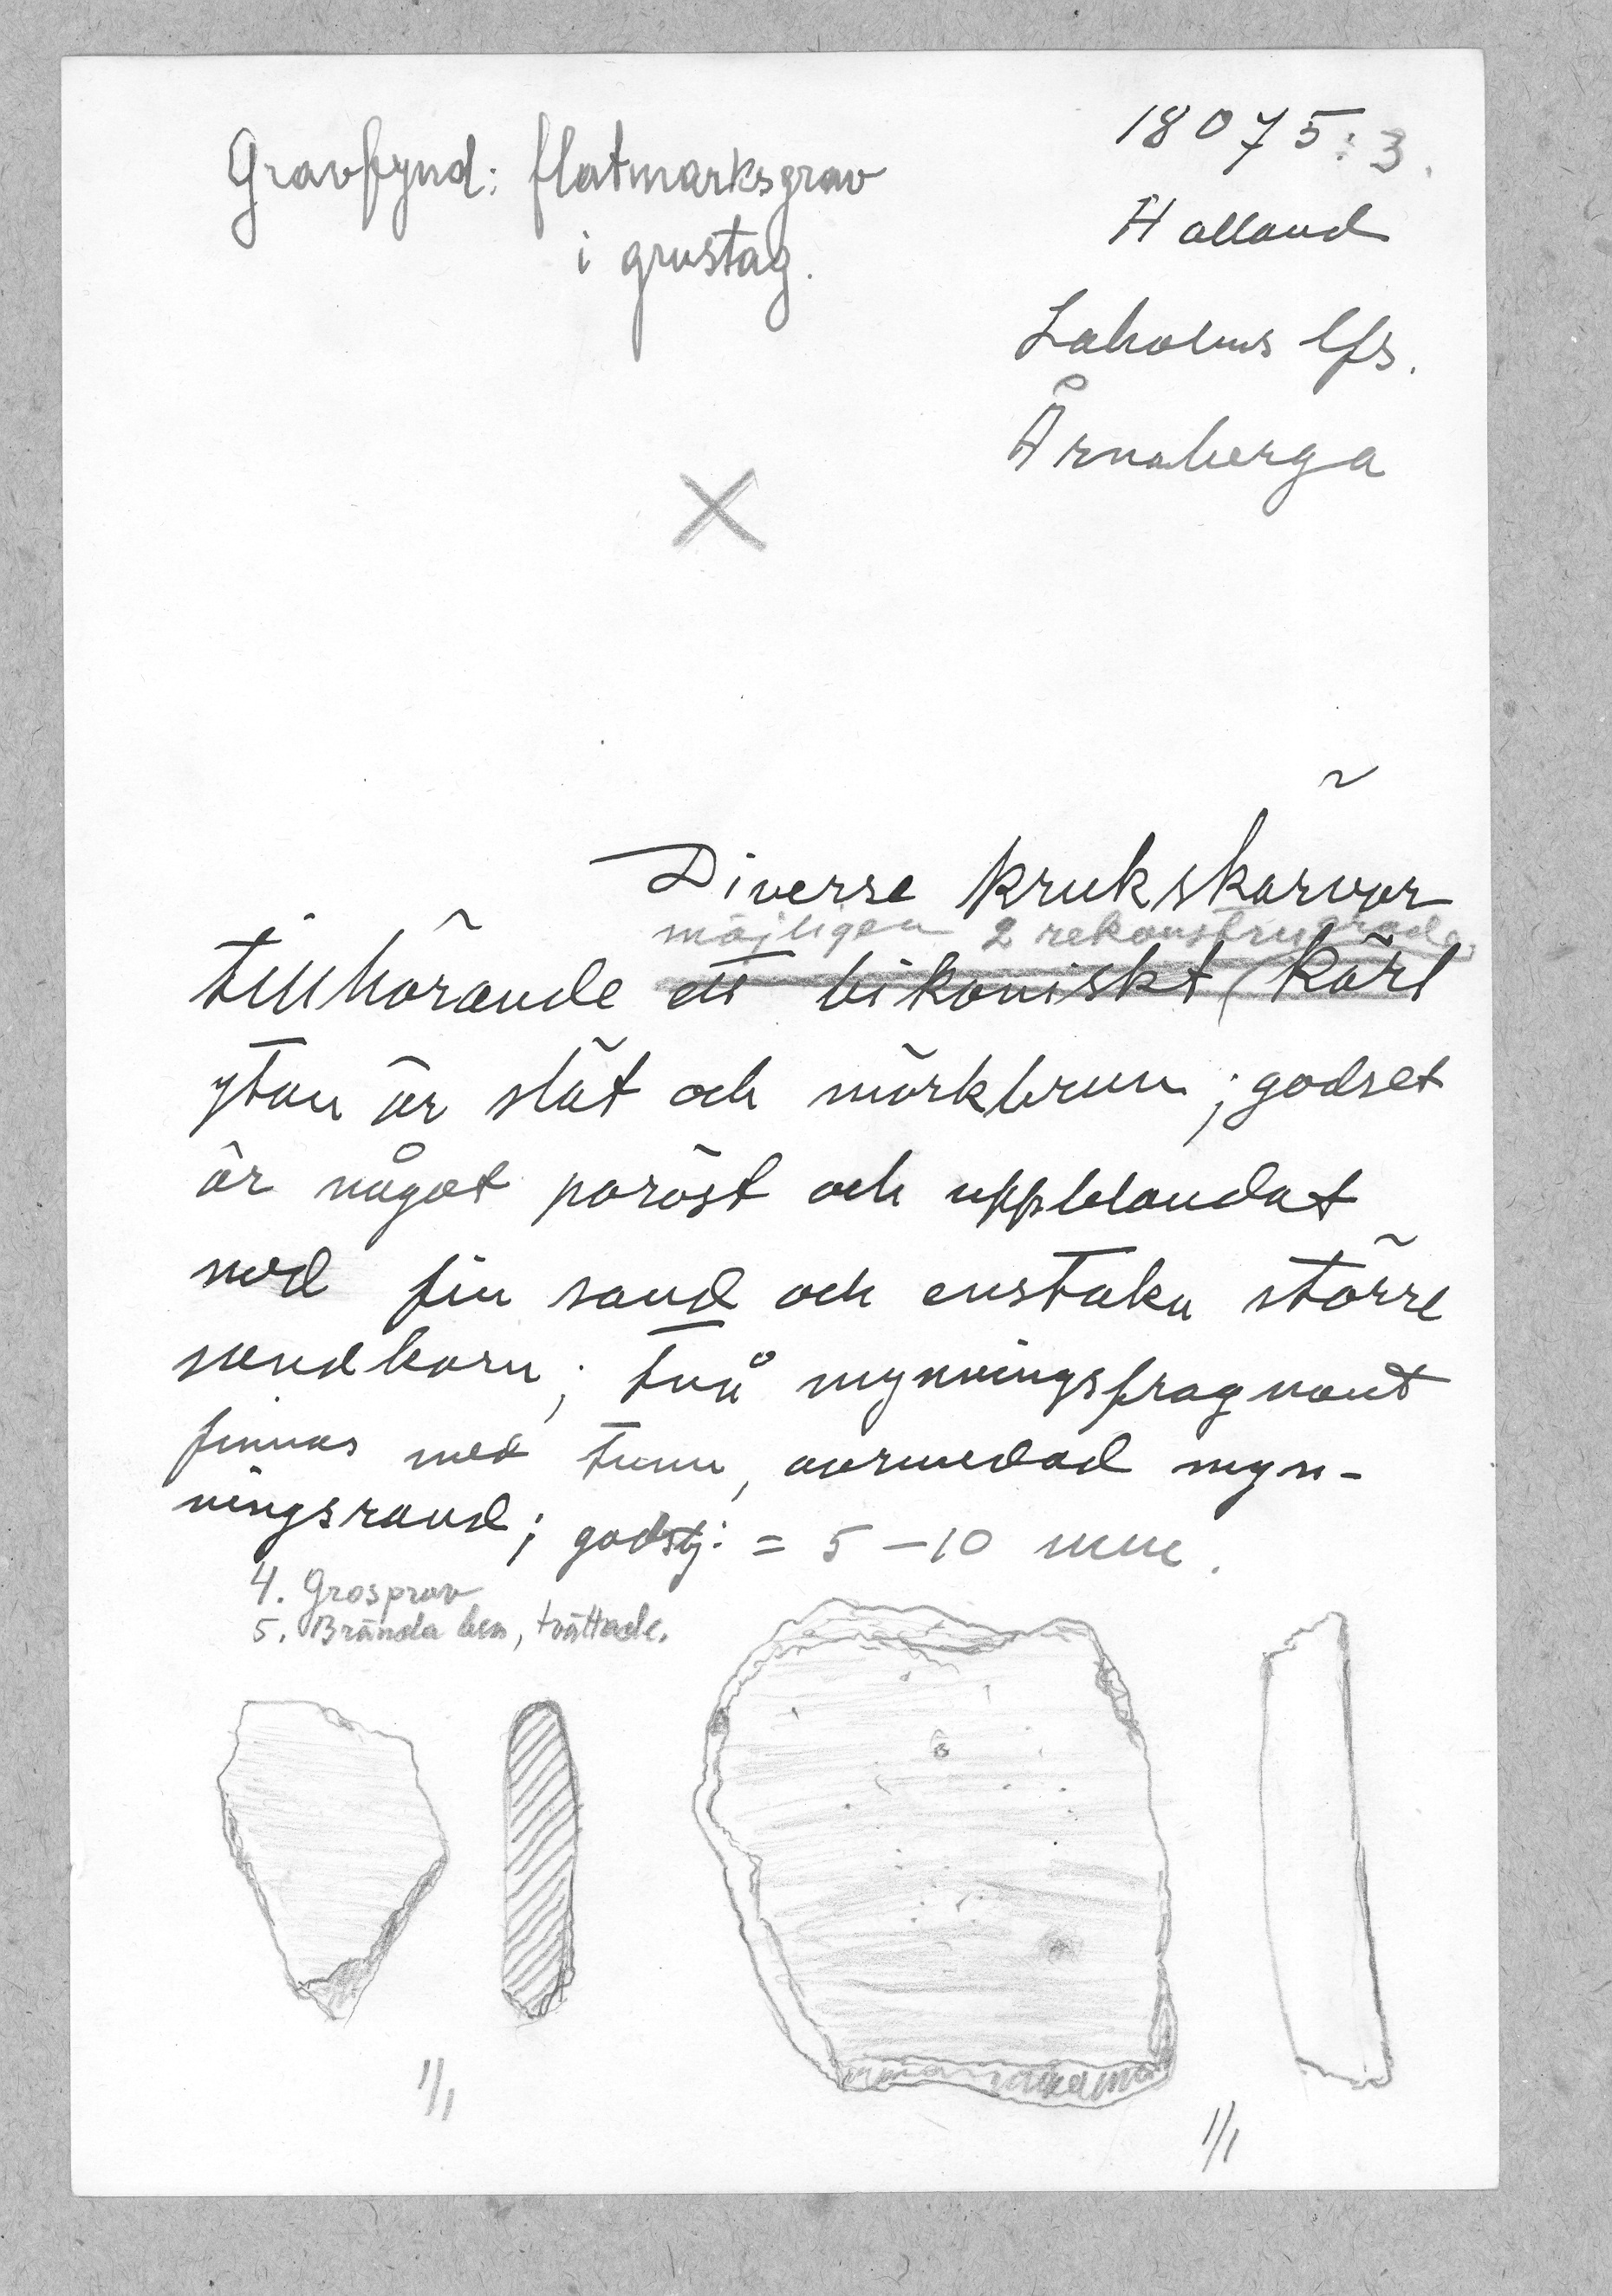 Gravfynd: flatmarksgrav
i grustag.
18075:3.
Halland
Laholms lfs.
Årnaberga
Diverse krukskärvor
möjligen 2 rekonstruerade
tillhörande ett bikoniskt kärl
ytan är slät och mörkbrun; godset
är något poröst och uppblandat
med fin sand och enstaka större
sandkorn; två mynningsfragment
finnas med tunn, avrundad myn-
ningsrand; godstj: = 5-10 mm.
4. Grusprov
5. Brända ben, tvättade.
1/1
1/1